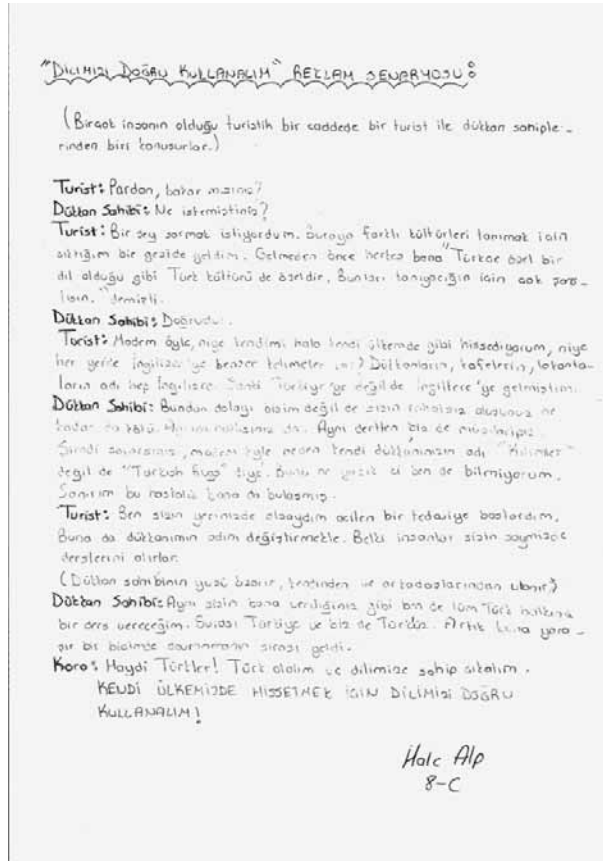 "DİLİMİZİ DOĞRU KULLANALIM" REKLAM SENARYOSU:
(Birçok insanın olduğu turistik bir caddede bir turist ile dükkan sahiple-
rinden biri konuşurlar.)
Turist: Pardon, bakar mısınız?
Dükkan Sahibi: Ne istemiştiniz?
Turist: Bir şey sormak istiyordum. Buraya farklı kültürleri tanımak için
çıktığım bir gezide geldim. Gelmeden önce herkes bana "Türkçe özel bir
dil olduğu gibi Türk kültürü de özeldir. Bunları tanıyacağın için çok şans-
lısın." demişti.
Dükkan Sahibi: Doğrudur.
Turist: Madem öyle, niye kendimi hala kendi ülkemde gibi hissediyorum, niye
her yerde İngilizce'ye benzer kelimeler var? Dükkanların, kafelerin, lokanta-
ların adı hep İngilizce. Sanki Türkiye'ye değil de İngiltere'ye gelmiştim.
Dükkan Sahibi: Bundan dolayı bizim değil de sizin rahatsız oluşunuz ne
kadar da kötü. Aynı dertten biz de
Şimdi sorarsınız, madem öyle neden kendi dükkanınızın adı "Kilimler"
değil de "Turkish Rugs" diye. Bunu ne yazık ki ben de bilmiyorum.
Sanırım bu hastalık bana da bulaşmış.
Turist: Ben sizin yerinizde olsaydım acilen bir tedaviye başlardım.
Buna da dükkanımın adını değiştirmekle. Belki insanlar sizin sayenizde
derslerini alırlar.
(Dükkan sahibinin yüzü kızarır, kendinden ve arkadaşlarından utanır)
Dükkan Sahibi: Aynı sizin bana verdiğiniz gibi ben de tüm Türk halkına
bir ders vereceğim. Burası Türkiye ve biz de Türküz. Artık buna yara-
şır bir biçimde davranmanın sırası geldi.
Koro: Haydi Türkler! Türk olalım ve dilimize sahip çıkalım.
KENDİ ÜLKEMİZDE HİSSETMEK İÇİN DİLİMİZİ DOĞRU
KULLANALIM!
Alp
8-C